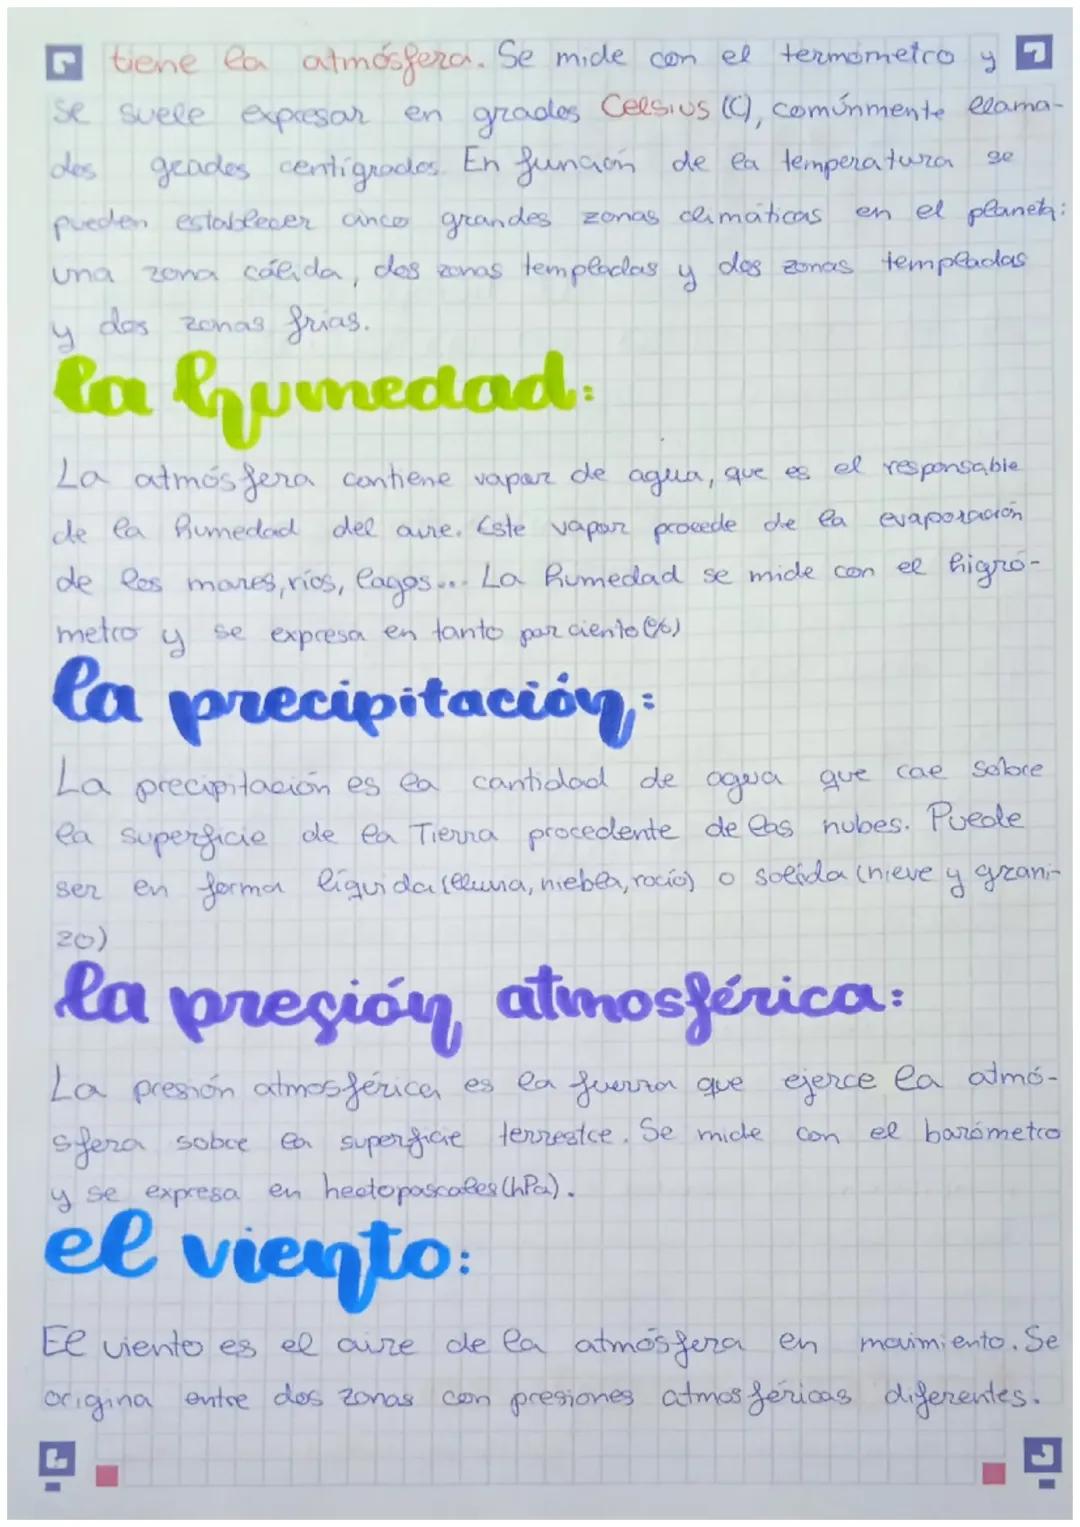 tiene la atmósfera. Se mide con el termómetro y
se suele expresar en grados Celsius (C), comúnmente llama-
dos grados centígrados. En función de la temperatura se
pueden establecer cinco grandes zonas climáticas en el planeta:
una zona cálida, dos zonas templadas y dos zonas templadas
y dos zonas frias.
la humedad:
La atmósfera contiene vapor de agua, que es el responsable
de la humedad del aire. Este vapor procede de la evaporación
de los mares, ríos, lagos... La humedad se mide con el higró-
metro y se expresa en tanto por ciento (%)
la precipitación:
La precipitación es la cantidad de agua que cae sobre
la superficie de la Tierra procedente de las nubes. Puede
ser en forma líquida (lluvia, niebla, rocío) o solida (nieve y grani-
zo)
la presión atmosférica:
La presión atmosférica es la fuerza que ejerce la atmó-
sfera sobre la superficie terrestre. Se mide con el barómetro
y se expresa en hectopascales (hPa).
el viento:
El viento es el aire de la atmósfera en movimiento. Se
origina entre dos zonas con presiones atmosféricas diferentes.